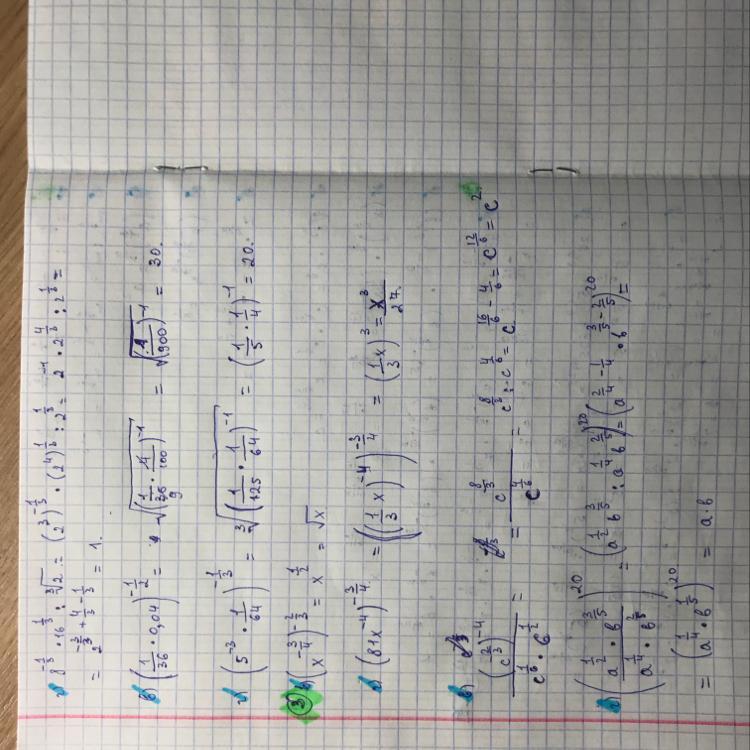 г) 8^{-1/3} · 16^{1/3} : ∛2 = (2^3)^{-1/3} · (2^4)^{1/3} : 2^{1/3} = 2^{-1} · 2^{4/3} : 2^{1/3} =
= 2^{-3/3 + 4/3 - 1/3} = 1.
в) (1/36 · 0,04)^{-1/2} = √(1/36 · 4/100)^{-1} = √(1/900)^{-1} = 30.
г) (5^{-3} · 1/64)^{-1/3} = ∛(1/125 · 1/64)^{-1} = (1/5 · 1/4)^{-1} = 20.
③ в) (x^{-3/4})^{-2/3} = x^{1/2} = √x
г) (81x^{-4})^{-3/4} = ((1/3 x)^{-4})^{-3/4} = (1/3 x)^3 = x^3/27.
в) (c^{-2/3})^{-4} / c^{1/6} · c^{1/2} = c^{8/3} / c^{4/6} = c^{8/3} : c^{4/6} = c^{16/6 - 4/6} = c^{12/6} = c^2.
г) (a^{1/2} · b^{3/5} / a^{1/4} · b^{2/5})^{20} = (a^{1/2} b^{3/5} : a^{1/4} b^{2/5})^{20} = (a^{2/4 - 1/4} · b^{3/5 - 2/5})^{20} =
= (a^{1/4} · b^{1/5})^{20} = a · b